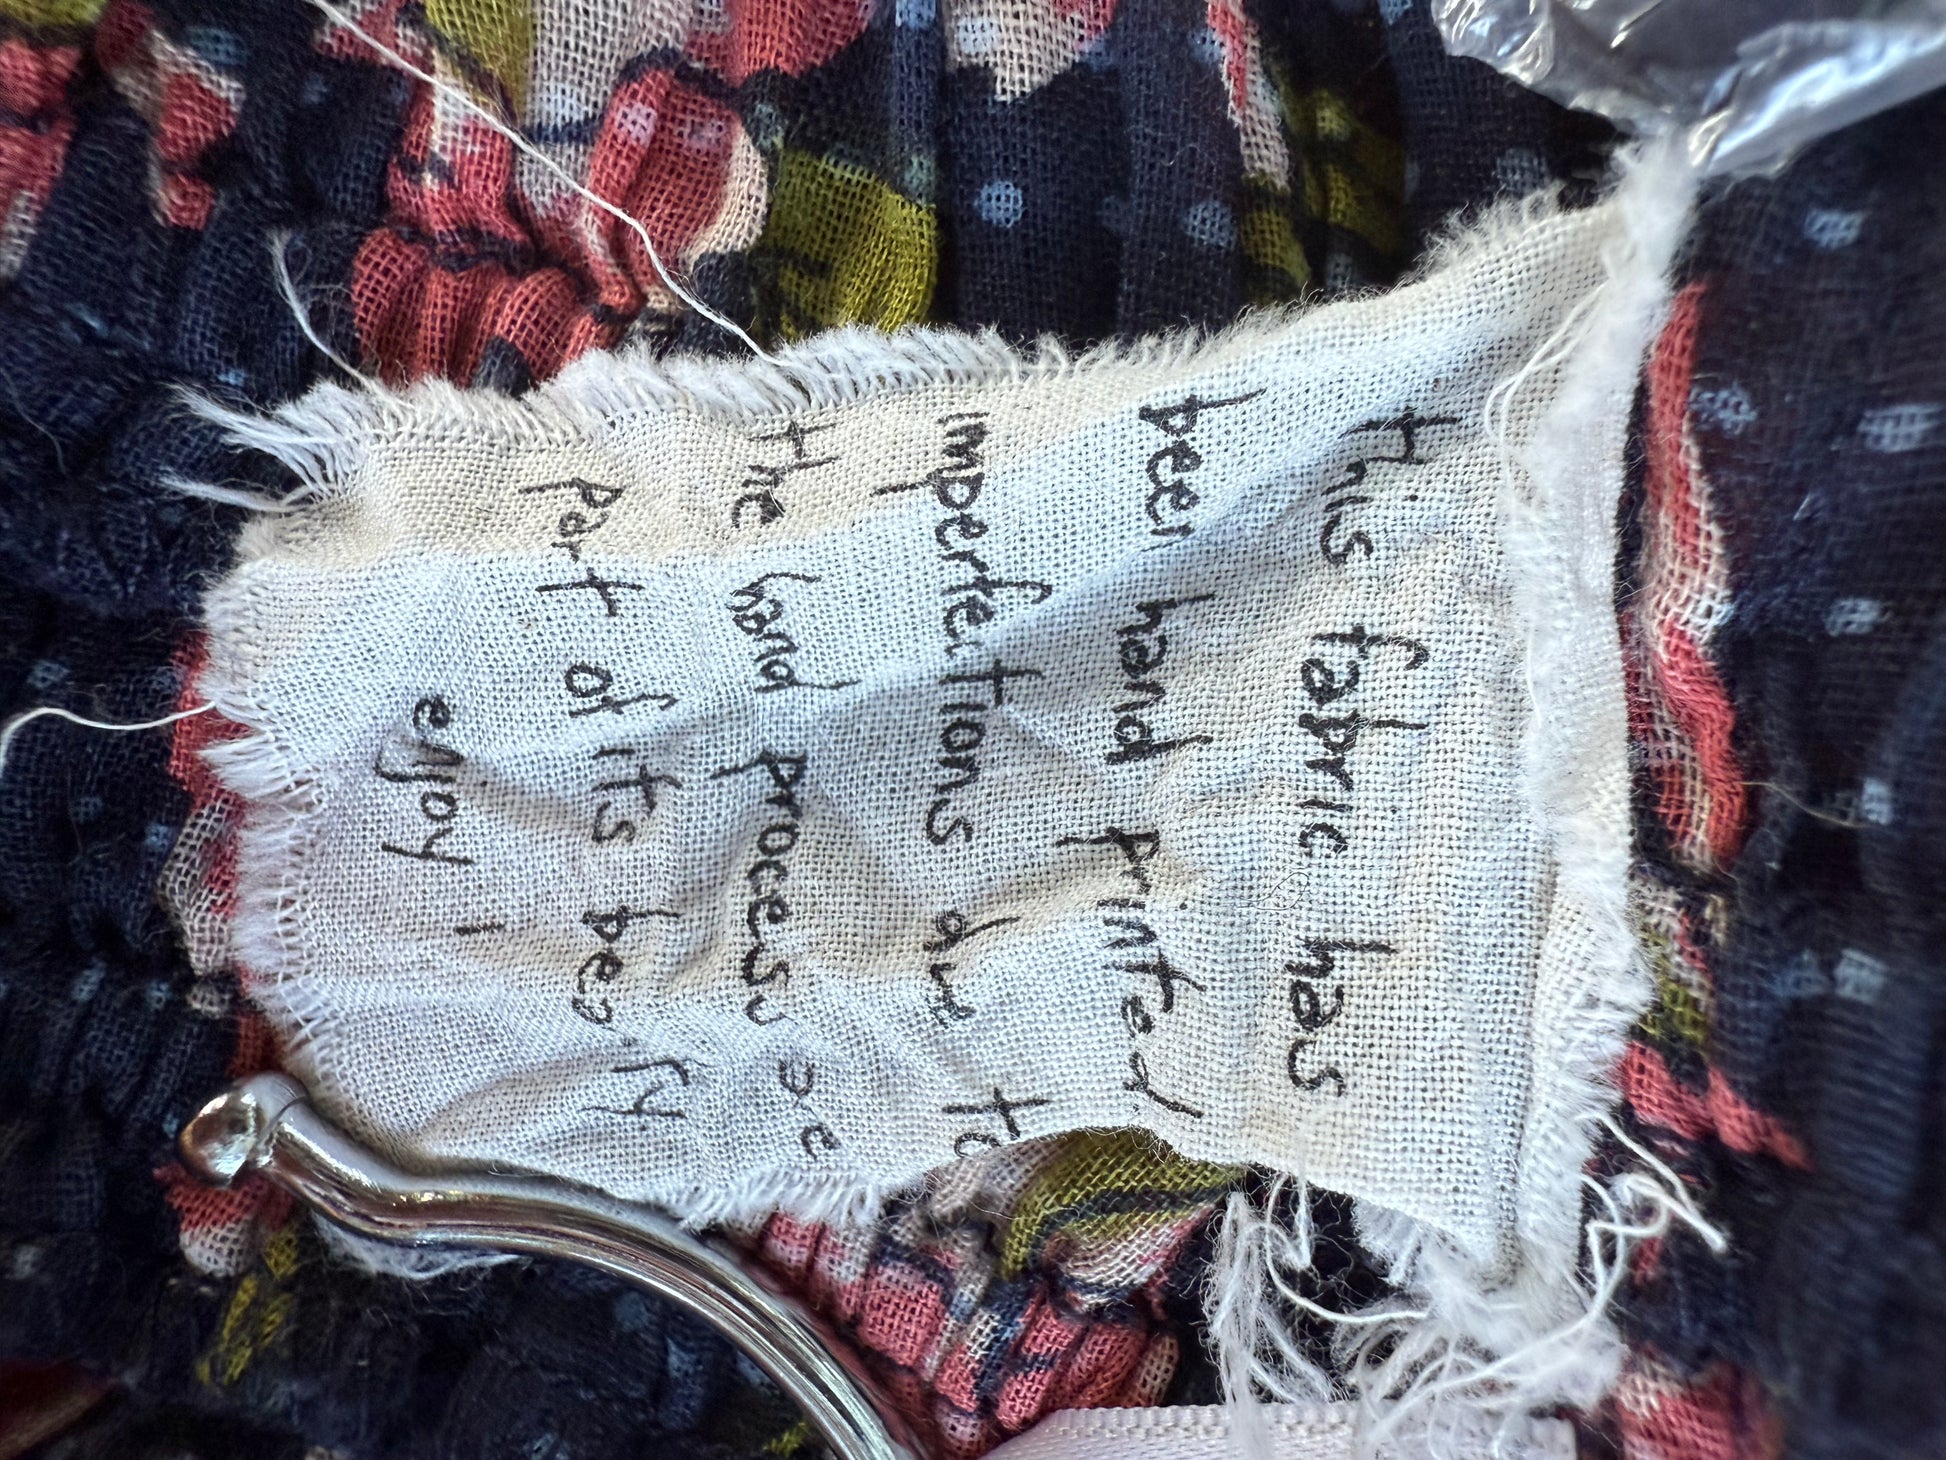 this fabric has
been hand printed
imperfections due to
the hand process are
part of its beauty
enjoy !